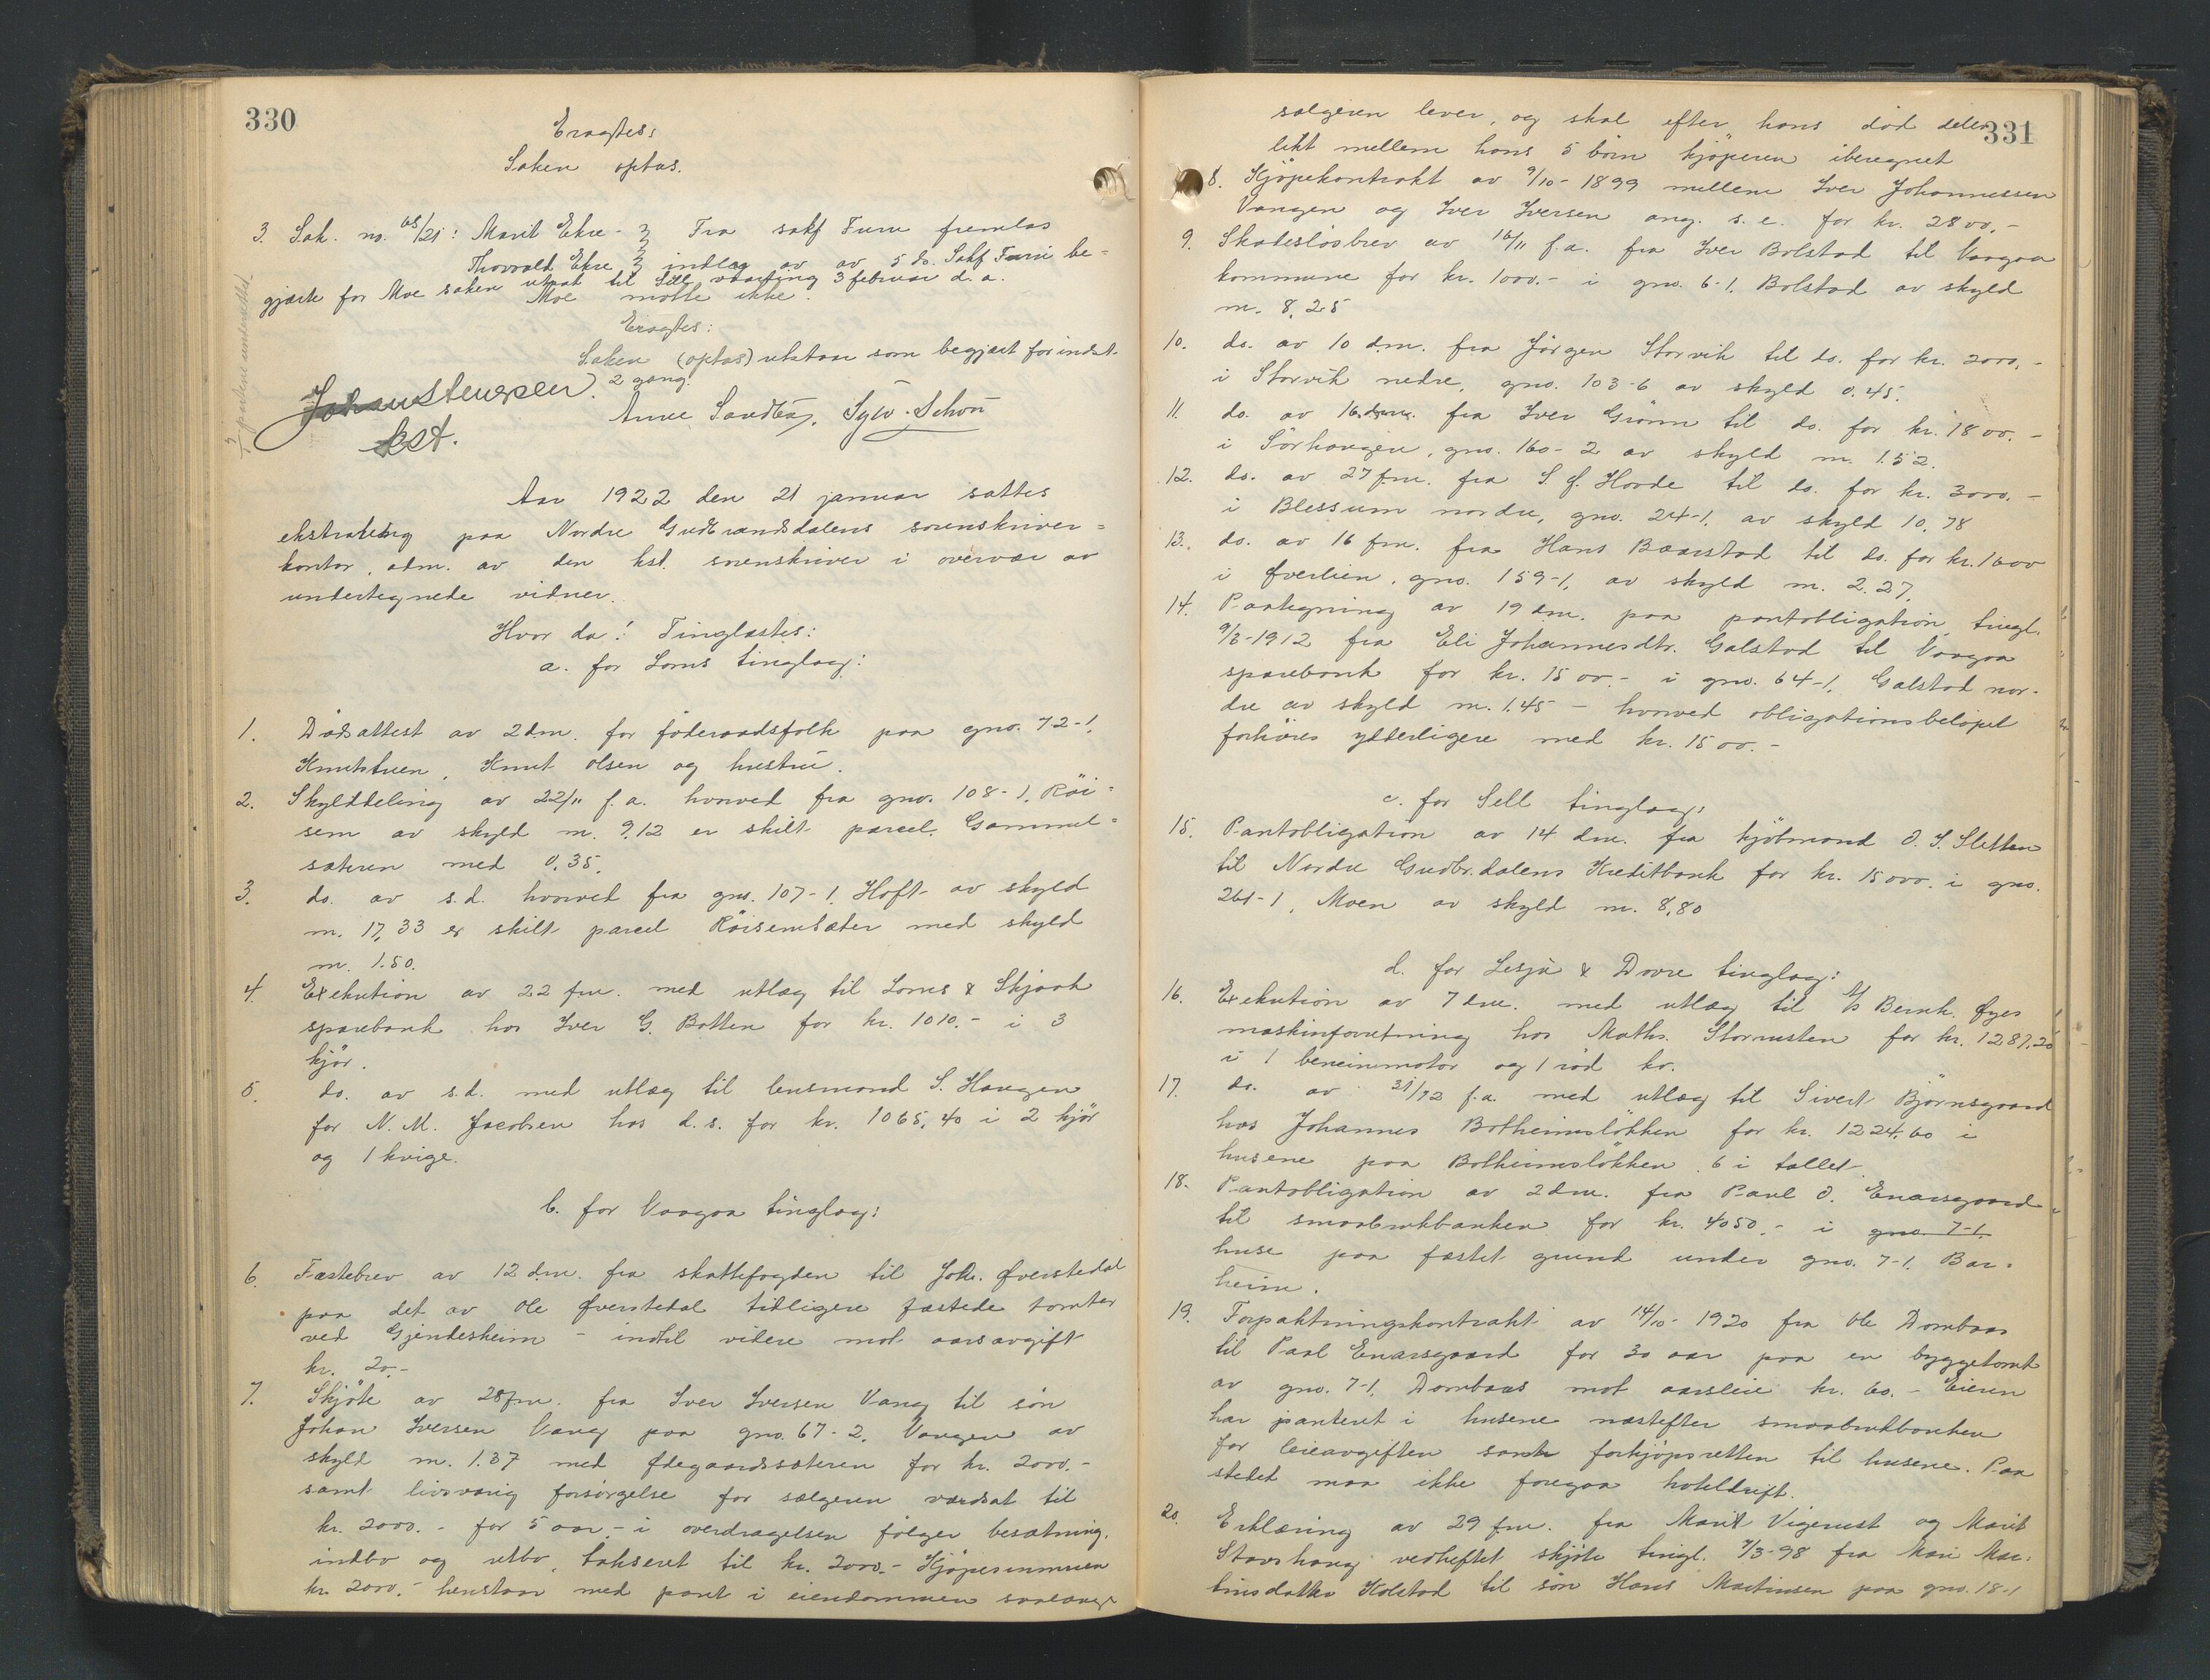 330
Eragtes:
Saken optas.
3. Sak. no. 68/21: Marit Ekre - Fra sakf Furu fremlas
Thorvald Ekre indlæg av av 5 ds. Sakf Furu be-
gjærte for Moe saken utsat til Sell vaarting 3 februar d. a.
Moe møtte ikke.
Eragtes:
Saken (optas) utstaar som begjært for indst.
2 gang.
Johan Stengsen
kst.
Anne Sandbø, Sylv. Schou
Aar 1922 den 21 januar sattes
ekstrateting paa Nordre Gudbrandsdalens sorenskriver=
kontor, adm. av den kst. sorenskriver i overvær av
undertegnede vidner.
Hvor da! Tinglæstes:
a. for Loms tinglag:
1. Dødsattest av 2 dm. for föderaadsfolk paa gno. 72-1,
Knutstuen, Knut Olsen og hustru.
2. Skylddeling av 22/11 f.a. hvorved fra gno. 108-1, Röi=
sem av skyld m. 9,12 er skilt parcel Gammel=
sæteren med 0,35.
3. do. av s.d. hvorved fra gno. 107-1, Hoft av skyld
m. 17,33 er skilt parcel Röisemsæter med skyld
m. 1.50.
4. Exekution av 22 fm. med utlæg til Loms & Skjaak
sparebank hos Iver G. Botten for kr. 1010.- i 3
kjör.
5. do. av s.d. med utlæg til lensmand S. Haugen
for N. M. Jacobsen hos d.s. for kr. 1065,40 i 2 kjör
og 1 kvige.
b. for Vaagaa tinglag:
6. Fæstebrev av 12 dm. fra skattefogden til Joh. Øverstedal
paa det av Ole Øverstedal tidligere fæstede tomter
ved Gjendesheim - indtil videre mot aarsavgift
kr. 20.-
7. Skjöte av 28 fm. fra Iver Iversen Vang til sön
Johan Iversen Vang paa gno. 67-2, Vangen av
skyld m. 1.37 med Ødegaardssæteren for kr. 2000.-
samt livsvarig forsörgelse for sælgeren værdsat til
kr. 2000.- for 5 aar - i overdragelsen fölger besætning,
indbo og utbo, takseret til kr. 2000.- Kjöpesummen
kr. 2000.- henstaar med pant i eiendommen saalænge
331
sælgeren lever, og skal efter hans död deles
likt mellem hans 5 börn kjöperen iberegnet
8. Kjöpekontrakt av 9/10-1899 mellem Iver Johannessen
Vangen og Iver Iversen ang. s. e. for kr. 2800.-
9. Skadeslösbrev av 16/11 f.a. fra Iver Bolstad til Vaagaa
kommune for kr. 1000.- i gno. 6-1, Bolstad av skyld
m. 8,25
10. do. av 10 dm. fra Jörgen Storvik til do. for kr. 2000,-
i Storvik nedre, gno. 103-6 av skyld 0.45.
11. do. av 16 dm. fra Iver Grönn til do. for kr. 1800.-
i Sörhaugen, gno. 160-2 av skyld m. 1.52.
12. do. av 27 fm. fra S. J. Horde til do. for kr. 3000.-
i Blessum nordre, gno. 24-1, av skyld 10,78
13. do. av 16 fm. fra Hans Baarstad til do. for kr. 1600
i Øverlien, gno. 159-1, av skyld m. 2.27.
14. Paategning av 19 dm. paa pantobligation, tingl.
9/3-1912 fra Eli Johannesdtr. Galstad til Vaagaa
sparebank for kr. 1500.- i gno. 64-1, Galstad nor-
dre av skyld m. 1.45 - hvorved obligationsbelöpet
forhöies ytterligere med kr. 1500.-
c. for Sell tinglag:
15. Pantobligation av 14 dm. fra kjöbmand O. S. Sletten
til Nordre Gudbr.dalens Kreditbank for kr. 15000. i gno.
261-1, Moen av skyld m. 8,80
d. for Lesja & Dovre tinglag:
16. Exekution av 7 dm. med utlæg til A/S Bernh. Øyes
maskinforretning hos Maths. Storrusten for kr. 1287,20
i 1 bensinmotor og 1 röd ko.
17. do. av 31/12 f.a. med utlæg til Sivert Björnsgaard
hos Johannes Botheimslökken for kr. 1224,60 i
husene paa Botheimslökken 6 i tallet.
18. Pantobligation av 2 dm. fra Paul O. Enarsgaard
til smaabrukbanken for kr. 4050.- i gno. 7-1,
huse paa fæstet grund under gno. 7-1, Bar=
heim.
19. Forpaktningskontrakt av 14/10-1920 fra Ole Dombaas
til Paul Enarsgaard for 30 aar paa en byggetomt
av gno. 7-1, Dombaas mot aarsleie kr. 60.- Eieren
har panteret i husene næstefter smaabrukbanken
for leieavgiften samt forkjöpsretten til husene. Paa
stedet maa ikke foregaa hoteldrift.
20. Erklæring av 29 fm. fra Marit Vigerust og Marit
Stavshaug vedheftet skjöte tingl. 7/3-98 fra Mari Mar-
tinsdatter Kolstad til sön Hans Martinsen paa gno. 18-1